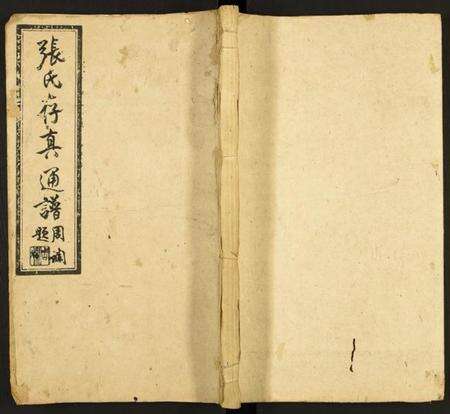 張氏存真通譜
周斕題